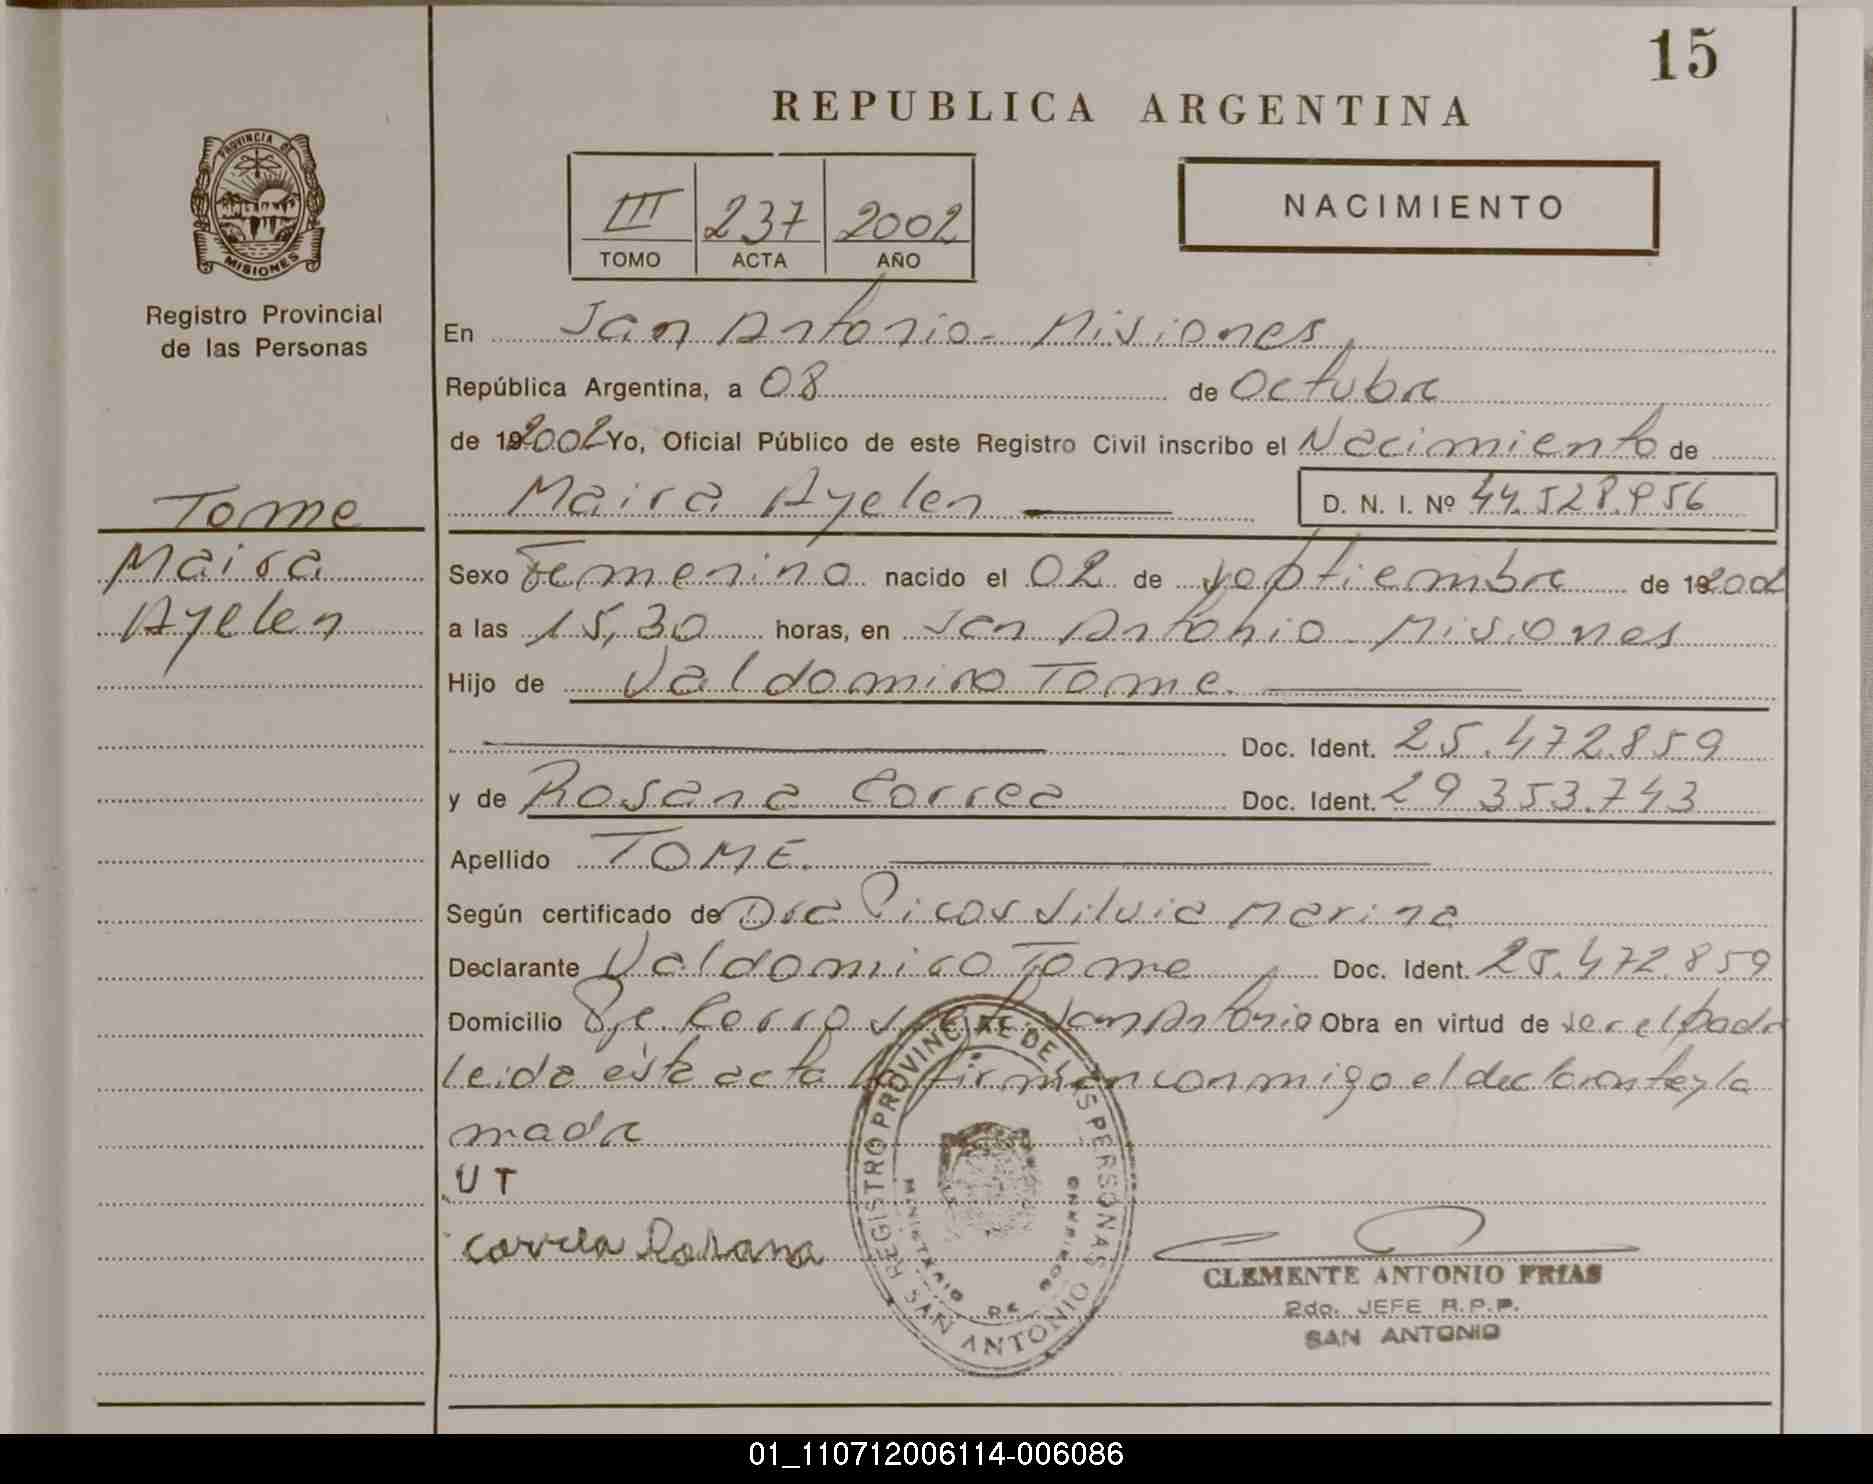 15
REPUBLICA ARGENTINA
PROVINCIA DE
MISIONES
Registro Provincial
de las Personas
III 237 2002
TOMO ACTA AÑO
NACIMIENTO
En San Antonio - Misiones
República Argentina, a 08 de Octubre
de 192002 Yo, Oficial Público de este Registro Civil inscribo el Nacimiento de
Maira Ayelen D. N. I. Nº 44.528.956
Tome
Maira
Ayelen
Sexo Femenino nacido el 02 de septiembre de 192002
a las 15,30 horas, en San Antonio Misiones
Hijo de Valdomiro Tome
Doc. Ident. 25.472.859
y de Rosana Correa Doc. Ident. 29.353.743
Apellido TOME.
Según certificado de Dra Picos Silvia Marina
Declarante Valdomiro Tome Doc. Ident. 25.472.859
Domicilio Pje. Cerro San Antonio Obra en virtud de ser el padre
leida ésta acta firman conmigo el declarante y la
madre
UT
Correa Rosana
REGISTRO PROVINCIAL DE LAS PERSONAS
MINISTERIO DE GOBIERNO
SAN ANTONIO
CLEMENTE ANTONIO FRIAS
2do. JEFE R.P.P.
SAN ANTONIO
01_110712006114-006086